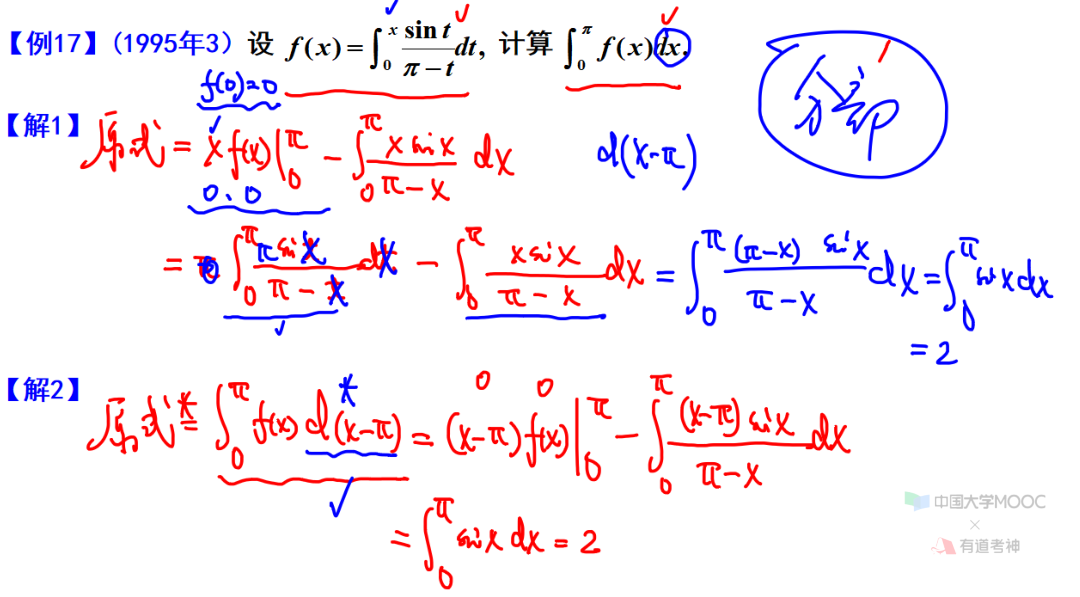 【例17】(1995年3) 设 f(x)=∫₀ˣ sin t/(π−t) dt, 计算 ∫₀^π f(x)dx.
f(0)=0
分部
【解1】 原式 = x f(x)|₀^π − ∫₀^π x sin x/(π−x) dx
d(x−π)
0、0
= π∫₀^π sin x/(π−x) dx − ∫₀^π x sin x/(π−x) dx = ∫₀^π (π−x) sin x/(π−x) dx = ∫₀^π sin x dx
= 2
【解2】 原式 = ∫₀^π f(x) d(x−π) = (x−π) f(x)|₀^π − ∫₀^π (x−π) sin x/(π−x) dx
0 0
= ∫₀^π sin x dx = 2
中国大学MOOC
×
有道考神